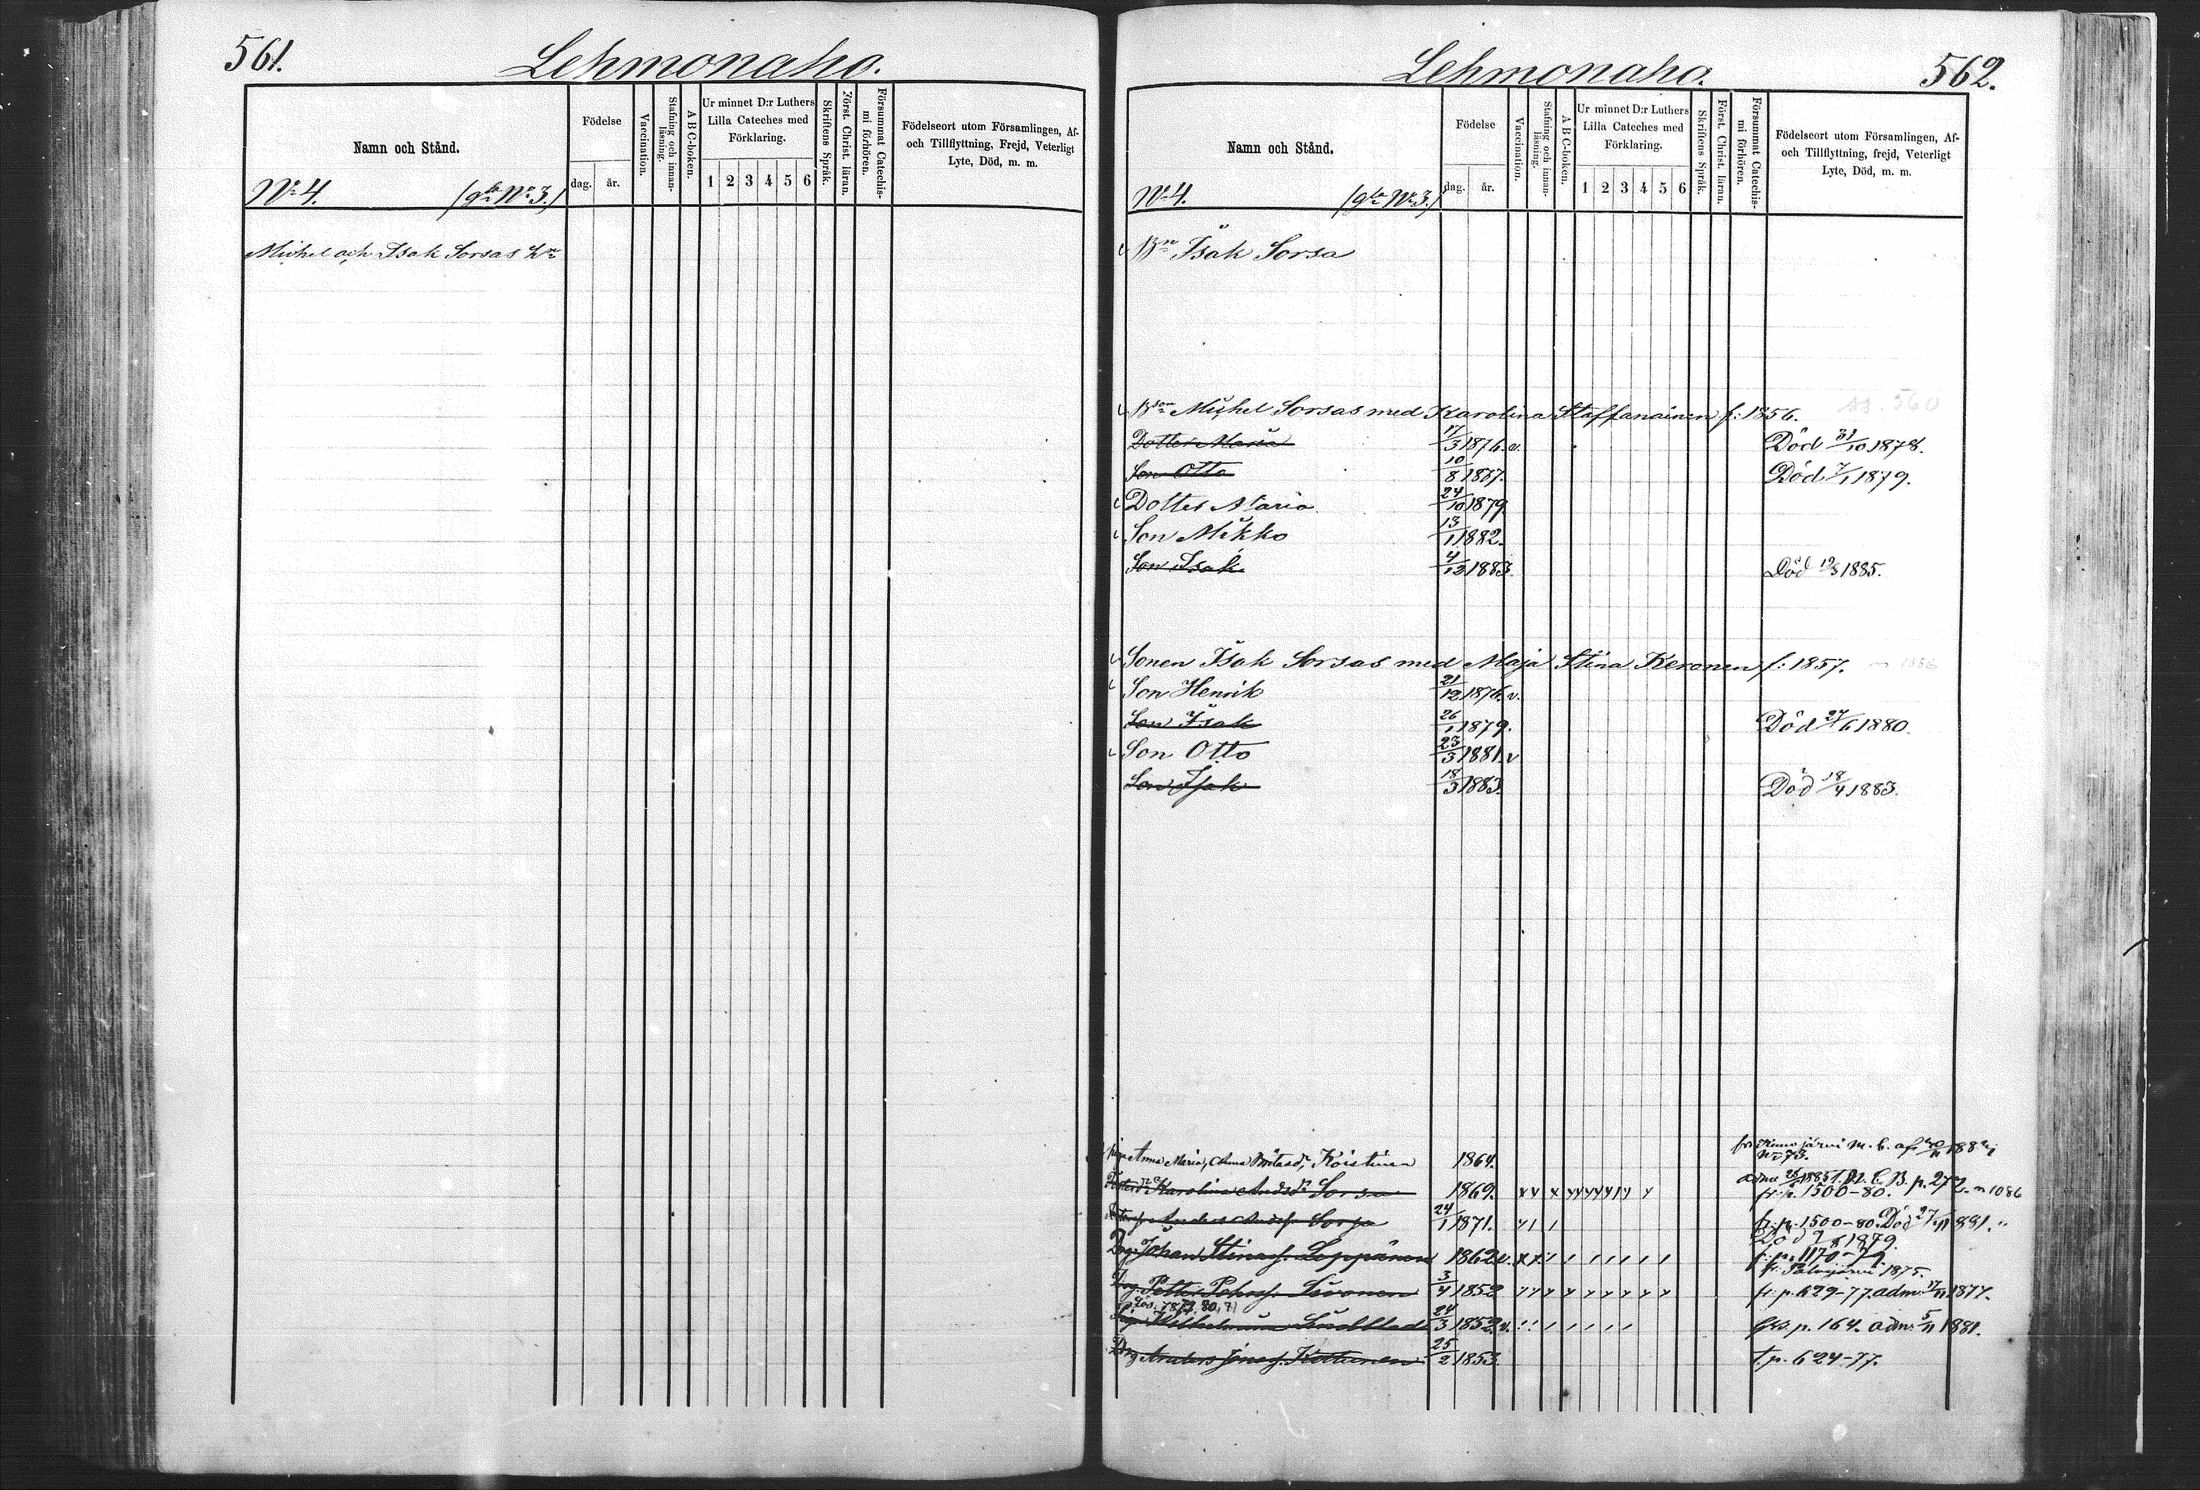 561.
Lehmonaho.
Namn och Stånd.
Födelse
dag. år.
Vaccination.
Stafning och innanläsning.
A B C-boken.
Ur minnet D:r Luthers
Lilla Cateches med
Förklaring.
1 2 3 4 5 6
Skriftens Språk.
Först. Christ. läran.
Försummat Catechismi förhören.
Födelseort utom Församlingen, Af-
och Tillflyttning, Frejd, Veterligt
Lyte, Död, m. m.
No 4. (gla No 3.)
Michel och Isak Sorsas
Lehmonaho.
562.
Namn och Stånd.
Födelse
dag. år.
Vaccination.
Stafning och innanläsning.
A B C-boken.
Ur minnet D:r Luthers
Lilla Cateches med
Förklaring.
1 2 3 4 5 6
Skriftens Språk.
Först. Christ. läran.
Försummat Catechismi förhören.
Födelseort utom Församlingen, Af-
och Tillflyttning, frejd, Veterligt
Lyte, Död, m. m.
No 4. (gla No 3.)
Bn Isak Sorsa
Bson Michel Sorsas med Karolina Staffanainen f: 1856. 560
Dotter Maria 17/3 1876. v. Död 31/10 1878.
Son Otto 10/8 1857. Död 7/1 1879.
Dotter Maria 24/10 1879.
Son Mikko 13/1 1882.
Son Isak 4/12 1883. Död 19/3 1885.
Sonen Isak Sorsas med Maja Stina Keronen f: 1857.
Son Henrik 21/12 1876. v.
Son Isak 26/1 1879. Död 27/6 1880.
Son Otto 23/3 1881. v
Son Isak 18/3 1883. Död 18/4 1883.
Anna Maria, Koistinen 1864. m. b. af 1882
No 73.
Karolina Andsdr Sorsa 1869. p. 272. n 1086
fr. p. 1500-80.
Anders Andsf Sorsa 24/1 1871. fr. p. 1500-80. Död 27/11 1881.
Död 1879.
Drg. Johan Stinasf. Leppänen 1862. v. fr. p. 1170-79.
1875.
Drg. Petter Pehrsf. Sivonen 3/4 1852 fr. p. 629-77. adm. 17/11 1877.
Wilhelmina 24/3 1852. v. p. 164. adm. 5/11 1881.
Drg Anders Jonasf. Kettunen 25/2 1853. t. p. 624-77.